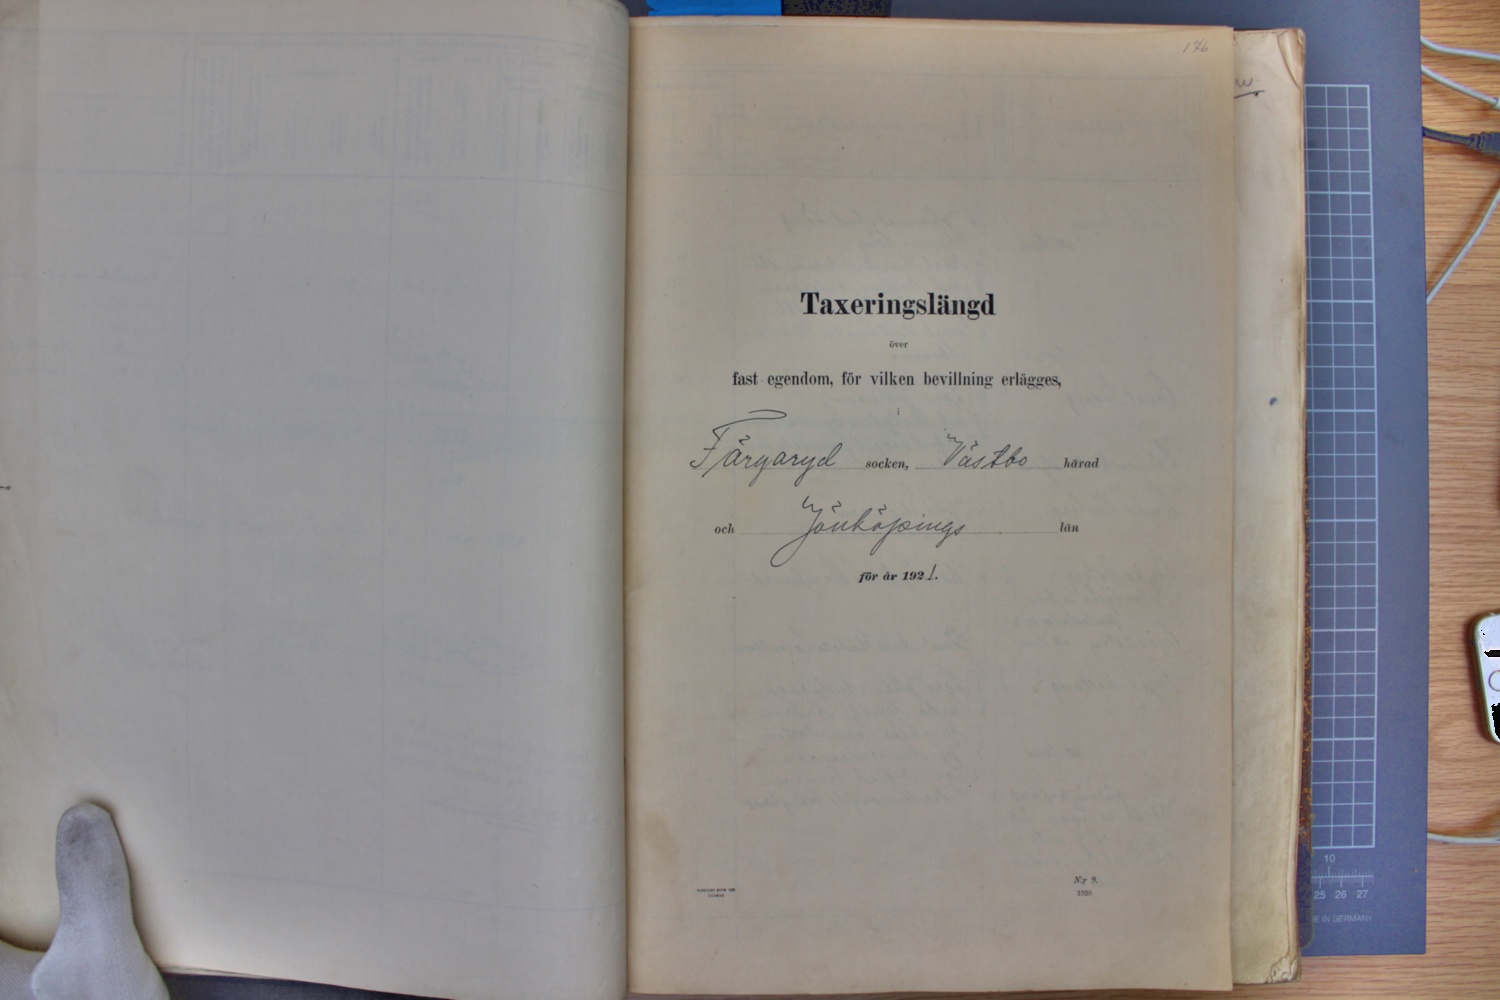 176
Taxeringslängd
över
fast egendom, för vilken bevillning erlägges,
i
Färgaryd socken, Västbo härad
och Jönköpings län
för år 1921.
N:r 9.
10
25 26 27
E IN GERMANY